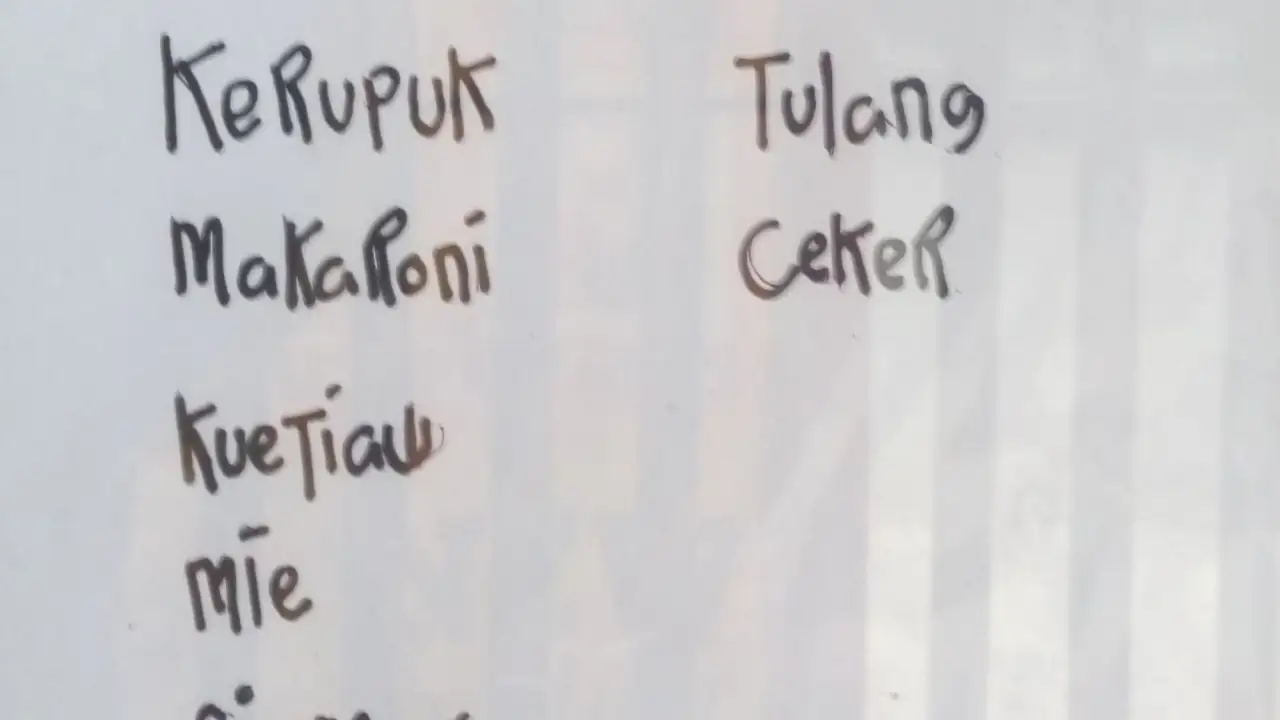 KeRupuK
MaKaRoni
KueTiau
Mie
Tulang
CeKeR